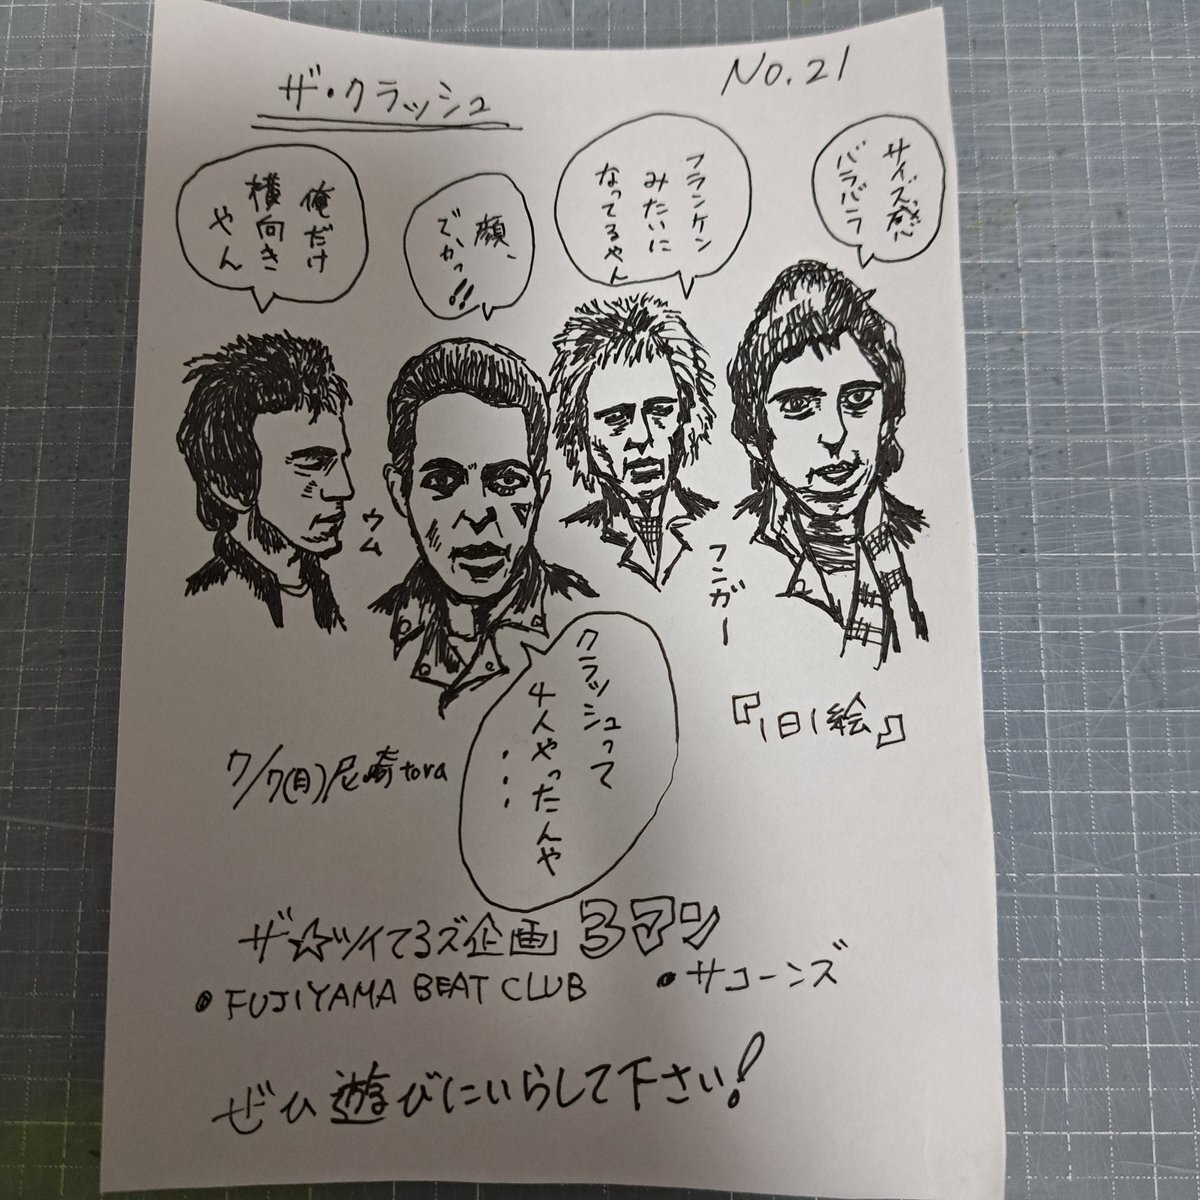 ザ・クラッシュ
No.21
俺だけ
横向き
やん
顔、
でかっ!!
フランケン
みたいに
なってるやん
サイズ感
バラバラ
ウム
フンガー
クラッシュって
4人やったんや
・・・
『1日1絵』
7/7(月)尼崎tora
ザ☆ツイてるズ企画 3マン
●FUJIYAMA BEAT CLUB ●サコーンズ
ぜひ遊びにいらして下さい!